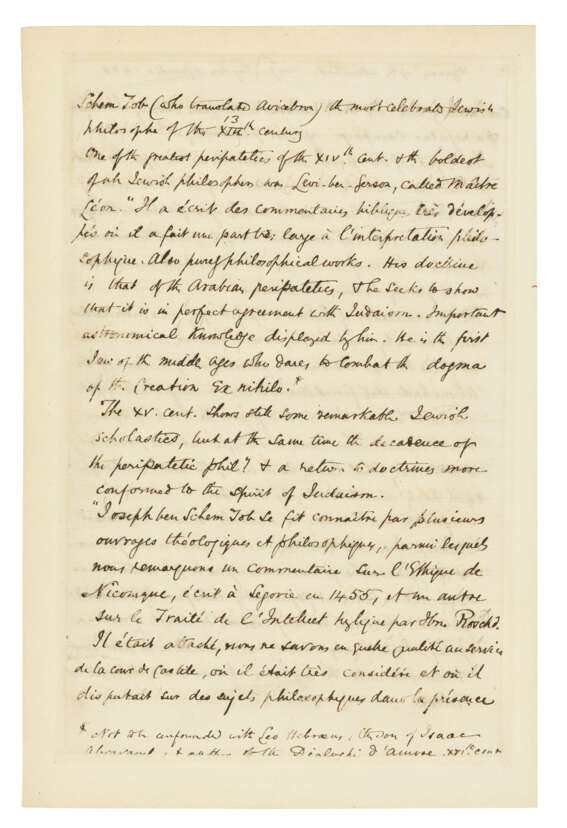 Schem Tob (who translated Avicebron) the most celebrated Jewish
philosophe of the 13 XIIIth century
One of the greatest peripatetics of the XIVth cent. & the boldest
of all Jewish philosophers was Levi-ben-Gerson, called Maître
Léon. "Il a écrit des commentaires bibliques très dévelop-
pés où il a fait une part très large à l'interprétation philo-
sophique. Also purely philosophical works. His doctrine
is that of the Arabian peripatetics, & he seeks to show
that it is in perfect agreement with Judaism. Important
astronomical knowledge displayed by him. He is the first
Jew of the middle ages who dares to combat the dogma
of the Creation Ex nihilo.*
The XV. cent. shows still some remarkable Jewish
scholastics, but at the same time the decadence of
the peripatetic phil? & a return to doctrines more
conformed to the spirit of Judaism.
"Joseph ben Schem Tob se fit connaître par plusieurs
ouvrages théologiques et philosophiques, parmi lesquels
nous remarquons un commentaire sur l'Ethique de
Nicomque, écrit à Ségovie en 1455, et un autre
sur le Traité de l'Intellect hylique par Ibn Roschd.
Il était attaché, nous ne savons en quelle qualité au service
de la cour de Castile, où il était très considéré et où il
disputait sur des sujets philosophiques dans la présence
* Not to be confounded with Leo Hebraeus, the son of Isaac
Abravanel, & author of the Dialoghi d'amore. XVIth cent